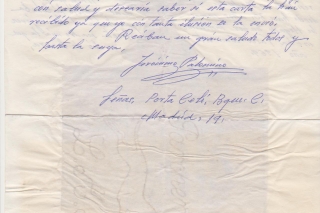 con salud y desearia saber si esta carta la han
recibido ya que yo con tanta ilusión se la envio.
Reciban un gran saludo todos y
hasta la suya.
Jerónimo Palomino
Señas, Porta Celi, Bque C.
Madrid. 19.